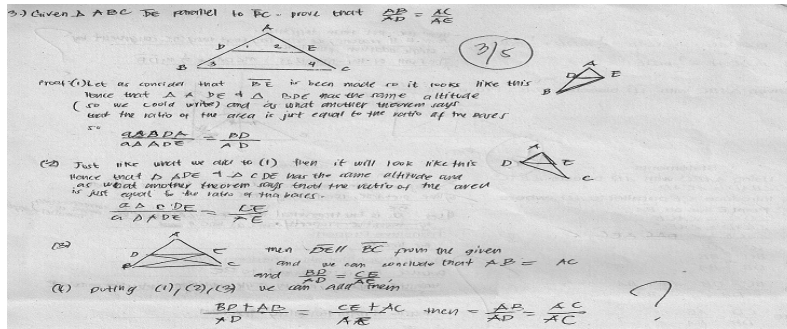 3.) Given Δ ABC DE parallel to BC. prove that AB/AD = AC/AE
A
D 1 2 E
B 3 4 C
3/5
A
D E
B
Proof: (1) Let as consider that BE is been made so it looks like this
Hence that Δ ADE & Δ BDE has the same altitude
(so we could write) and as what another theorem says
that the ratio of the area is just equal to the ratio of the bases
so
aΔBDA / aΔADE = BD / AD
A
D E
C
(2) Just like what we did to (1) then it will look like this
Hence that Δ ADE & Δ CDE has the same altitude and
as what another theorem says that the ratio of the area
is just equal to the ratio of the bases.
aΔ CDE / aΔADE = CE / AE
(3)
A
D E
B C
then DE // BC from the given
and we can conclude that AB = AC
and BD/AD = CE/AE
(4) Puting (1), (2), (3) we can add them
BD + AB / AD = CE + AC / AE then = AB/AD = AC/AC
?